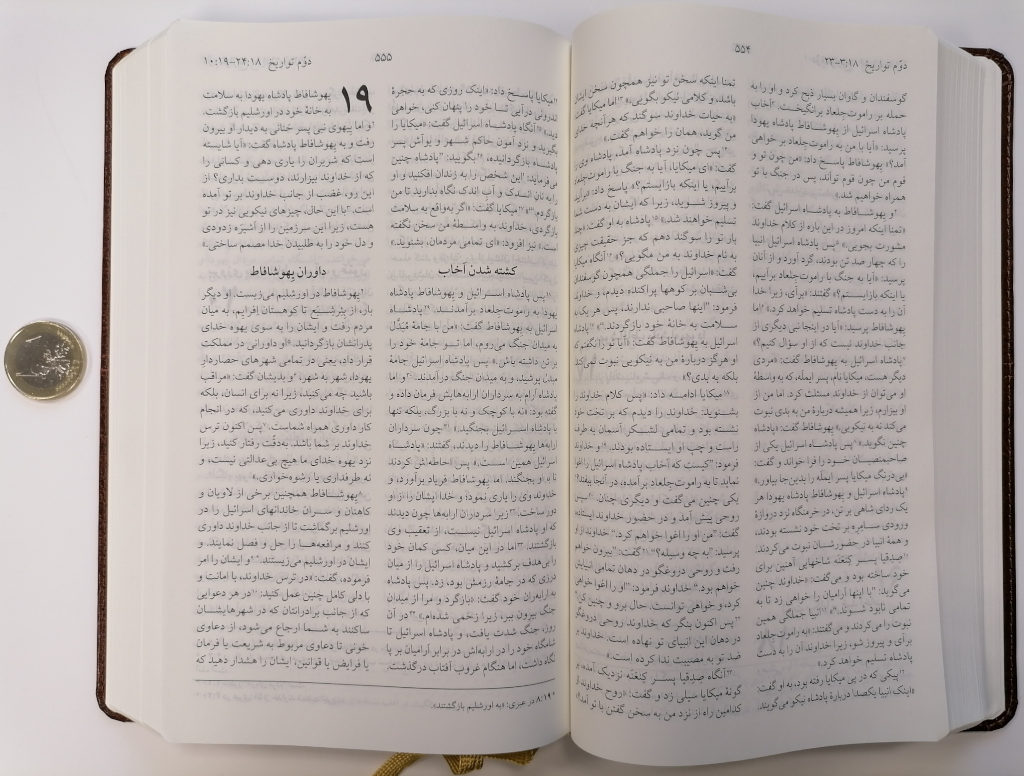 ۵۵۴
دوّم تواریخ ۱۸:‏۳-۲۳
گوسفندان و گاوان بسیار ذبح کرد و او را به
حمله بر راموت‌جلعاد برانگیخت. ۳اَخاب
پادشاه اسرائیل از یهوشافاط پادشاه یهودا
پرسید: «آیا با من به راموت‌جلعاد بر خواهی
آمد؟» یهوشافاط پاسخ داد: «من چون تو و
قوم من چون قوم تواَند، پس در جنگ با تو
همراه خواهیم شد.»
۴و یهوشافاط به پادشاه اسرائیل گفت:
«تمنا اینکه امروز در این باره از کلام خداوند
مشورت بجویی.» ۵پس پادشاه اسرائیل انبیا
را که چهار صد تن بودند، گرد آورد و از آنان
پرسید: «آیا به جنگ با راموت‌جلعاد برآییم،
یا اینکه بازایستم؟» گفتند: «برآی، زیرا خدا
آن را به دست پادشاه تسلیم خواهد کرد.» ۶اما
یهوشافاط پرسید: «آیا در اینجا نبی دیگری از
جانب خداوند نیست که از او سؤال کنیم؟»
۷پادشاه اسرائیل به یهوشافاط گفت: «مردی
دیگر هست، میکایا نام، پسر ایملَه، که به واسطۀ
او می‌توان از خداوند مسئلت کرد. اما من از
او بیزارم، زیرا همیشه دربارۀ من به بدی نبوت
می‌کند نه به نیکویی.» یهوشافاط گفت: «پادشاه
چنین نگوید.» ۸پس پادشاه اسرائیل یکی از
صاحبمنصبان خود را فرا خواند و گفت:
«بی‌درنگ میکایا پسر ایملَه را بدین‌جا بیاور.»
۹پادشاه اسرائیل و یهوشافاط پادشاه یهودا هر
یک ردای شاهی بر تن، در خرمنگاه نزد دروازۀ
ورودی سامِرِه بر تخت خود نشسته بودند،
و همۀ انبیا در حضورشان نبوت می‌کردند.
۱۰صِدِقیا پسر کِنَعَنَه شاخهایی آهنین برای
خود ساخته بود و می‌گفت: «خداوند چنین
می‌گوید: ”با اینها اَرامیان را خواهی زد تا به
تمامی نابود شوند.“» ۱۱انبیا جملگی همین
نبوت را می‌کردند و می‌گفتند: «به راموت‌جلعاد
برآی و پیروز شو، زیرا خداوند آن را به دست
پادشاه تسلیم خواهد کرد.»
۱۲پیکی که در پی میکایا رفته بود، به او گفت:
«اینک انبیا یکصدا دربارۀ پادشاه نیکو می‌گویند.
تمنا اینکه سخن تو نیز همچون سخن ایشان
باشد، و کلامی نیکو بگویی.» ۱۳اما میکایا گفت:
«به حیات خداوند سوگند که هرآنچه خدای
من گوید، همان را خواهم گفت.»
۱۴پس چون نزد پادشاه آمد، پادشاه وی را
گفت: «ای میکایا، آیا به جنگ با راموت‌جلعاد
برآییم، یا اینکه بازایستم؟» پاسخ داد: «برآیید
و پیروز شوید، زیرا که ایشان به دست شما
تسلیم خواهند شد.» ۱۵پادشاه به او گفت: «چند
بار تو را سوگند دهم که جز حقیقت چیزی
به نام خداوند به من مگویی؟» ۱۶آنگاه میکایا
گفت: «اسرائیل را جملگی همچون گوسفندان
بی‌شبان بر کوهها پراکنده دیدم، و خداوند
فرمود: ”اینها صاحبی ندارند، پس هر یک به
سلامت به خانۀ خود بازگردند.“» ۱۷پادشاه
اسرائیل به یهوشافاط گفت: «آیا تو را نگفتم که
او هرگز دربارۀ من به نیکویی نبوت نمی‌کند
بلکه به بدی؟»
۱۸میکایا ادامه داد: «پس کلام خداوند را
بشنوید: خداوند را دیدم که بر تخت خود
نشسته بود و تمامی لشکر آسمان به طرف
راست و چپ او ایستاده بودند. ۱۹و خداوند
فرمود: ”کیست که اَخاب پادشاه اسرائیل را اغوا
نماید تا به راموت‌جلعاد برآمده، در آنجا بیفتد؟“
یکی چنین می‌گفت و دیگری چنان. ۲۰پس
روحی پیش آمد و در حضور خداوند ایستاده،
گفت: ”من او را اغوا خواهم کرد.“ خداوند از او
پرسید: ”به چه وسیله؟“ ۲۱گفت: ”بیرون خواهم
رفت و روحی دروغگو در دهان تمامی انبیایش
خواهم بود.“ خداوند فرمود: ”او را اغوا خواهی
کرد، و خواهی توانست. حال برو و چنین کن.“
۲۲پس اکنون بنگر که خداوند روحی دروغگو
در دهان این انبیای تو نهاده است. خداوند بر
ضد تو به مصیبت ندا کرده است.»
۲۳آنگاه صِدِقیا پسر کِنَعَنَه نزدیک آمده، بر
گونۀ میکایا سیلی زد و گفت: «روح خداوند از
کدامین راه از نزد من به سخن گفتن با تو آمد؟»
۵۵۵
دوّم تواریخ ۱۸:‏۲۴-۱۹:‏۱۰
۲۴میکایا پاسخ داد: «اینک روزی که به حجرۀ
اندرونی درآیی تا خود را پنهان کنی، خواهی
دید.» ۲۵آنگاه پادشاه اسرائیل گفت: «میکایا را
بگیرید و نزد آمون حاکم شهر و یوآش پسر
پادشاه بازگردانیده، ۲۶بگویید: ”پادشاه چنین
می‌فرماید: این شخص را به زندان افکنید و او
را به نان اندک و آب اندک نگاه بدارید تا من
بازگردم.“» ۲۷میکایا گفت: «اگر به‌واقع به سلامت
بازگردی، خداوند به واسطۀ من سخن نگفته
است.» نیز افزود: «ای تمامی مردمان، بشنوید.»
کشته شدن اَخاب
۲۸پس پادشاه اسرائیل و یهوشافاط پادشاه
یهودا به راموت‌جلعاد برآمدند. ۲۹پادشاه
اسرائیل به یهوشافاط گفت: «من با جامۀ مُبَدَّل
به میدان جنگ می‌روم، اما تو جامۀ خود را
بر تن داشته باش.» پس پادشاه اسرائیل جامۀ
مبدل پوشید، و به میدان جنگ درآمدند. ۳۰و اما
پادشاه اَرام به سرداران ارابه‌هایش فرمان داده و
گفته بود: «نه با کوچک و نه با بزرگ، بلکه تنها
با پادشاه اسرائیل بجنگید.» ۳۱چون سرداران
ارابه‌ها یهوشافاط را دیدند، گفتند: «پادشاه
اسرائیل همین است.» پس احاطه‌اش کردند
تا با او بجنگند. اما یهوشافاط فریاد برآورد، و
خداوند وی را یاری نمود؛ و خدا ایشان را از او
دور ساخت؛ ۳۲زیرا سرداران ارابه‌ها چون دیدند
که او پادشاه اسرائیل نیست، از تعقیب وی
بازگشتند. ۳۳اما در این میان، کسی کمان خود
را بی‌هدف برکشید و پادشاه اسرائیل را از میان
درزی که در جامۀ رزمش بود، زد. پس پادشاه
به ارابه‌ران خود گفت: «بازگرد و مرا از میدان
جنگ بیرون ببر، زیرا زخمی شده‌ام.» ۳۴در آن
روز، جنگ شدت یافت، و پادشاه اسرائیل تا
شامگاه خود را در ارابه‌اش در برابر اَرامیان بر پا
نگاه داشت، اما هنگام غروب آفتاب درگذشت.
۱۹
یهوشافاط پادشاه یهودا به سلامت
به خانۀ خود در اورشلیم بازگشت.
۲و اما ییهوی نبی پسر حَنانی به دیدار او بیرون
رفت و به یهوشافاط پادشاه گفت: «آیا شایسته
است که شریران را یاری دهی و کسانی را
که از خداوند بیزارند، دوست بداری؟ از
این رو، غضب از جانب خداوند بر تو آمده
است. ۳با این حال، چیزهای نیکویی نیز در تو
هست، زیرا این سرزمین را از اَشیرَه زدودی
و دل خود را به طلبیدن خدا مصمم ساختی.»
داوران یهوشافاط
۴یهوشافاط در اورشلیم می‌زیست. او دیگر
بار، از بئرشبع تا کوهستان اِفرایم، به میان
مردم رفت و ایشان را به سوی یهوه خدای
پدرانشان بازگردانید. ۵او داورانی در مملکت
قرار داد، یعنی در تمامی شهرهای حصاردار
یهودا، شهر به شهر، ۶و بدیشان گفت: «مراقب
باشید چه می‌کنید، زیرا نه برای انسان، بلکه
برای خداوند داوری می‌کنید، که در انجام
کار داوری همراه شماست. ۷پس اکنون ترس
خداوند بر شما باشد. به‌دقّت رفتار کنید، زیرا
نزد یهوه خدای ما هیچ بی‌عدالتی نیست، و
نه طرفداری یا رشوه‌خواری.»
۸یهوشافاط همچنین برخی از لاویان و
کاهنان و سران خاندانهای اسرائیل را در
اورشلیم برگماشت تا از جانب خداوند داوری
کنند و مرافعه‌ها را حل و فصل نمایند. و
ایشان در اورشلیم می‌زیستند.* ۹و ایشان را امر
فرموده، گفت: «در ترس خداوند، با امانت و
با دلی کامل چنین عمل کنید: ۱۰در هر دعوایی
که از جانب برادرانتان که در شهرهایشان
ساکنند به شما ارجاع می‌شود، از دعاوی
خونی تا دعاوی مربوط به شریعت یا فرمان
یا فرایض یا قوانین، ایشان را هشدار دهید که
* ۸:۱۹ در عبری: «به اورشلیم بازگشتند».